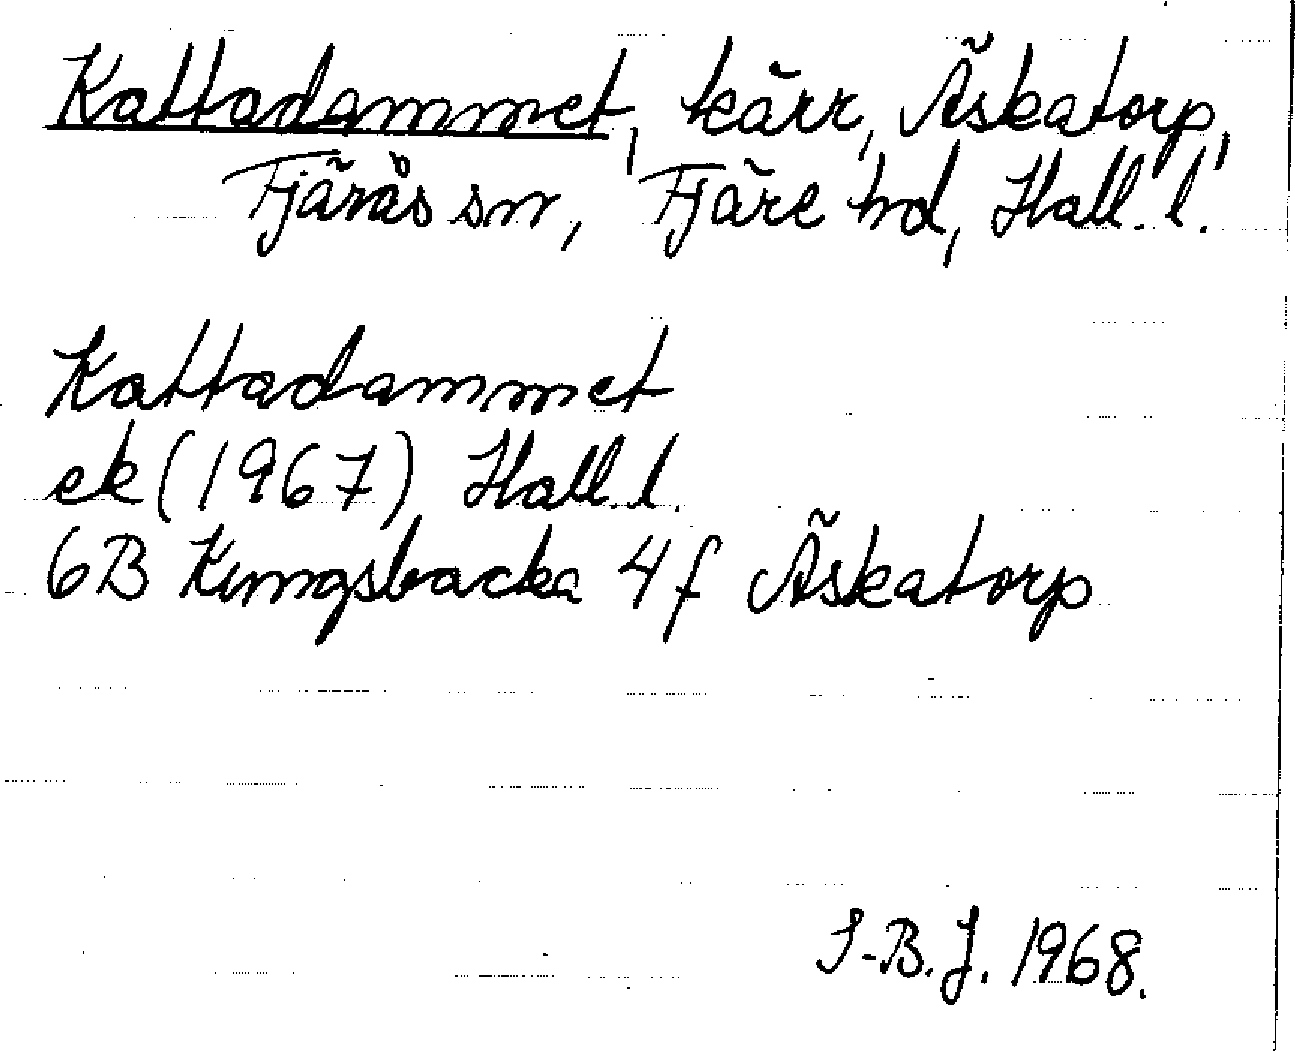 Kattadammet, kärr, Äskatorp,
Fjärås sn, Fjäre hd, Hall. l.
Kattadammet
ek (1967) Hall. l.
6B Kungsbacka 4f Äskatorp
I-B.J. 1968.